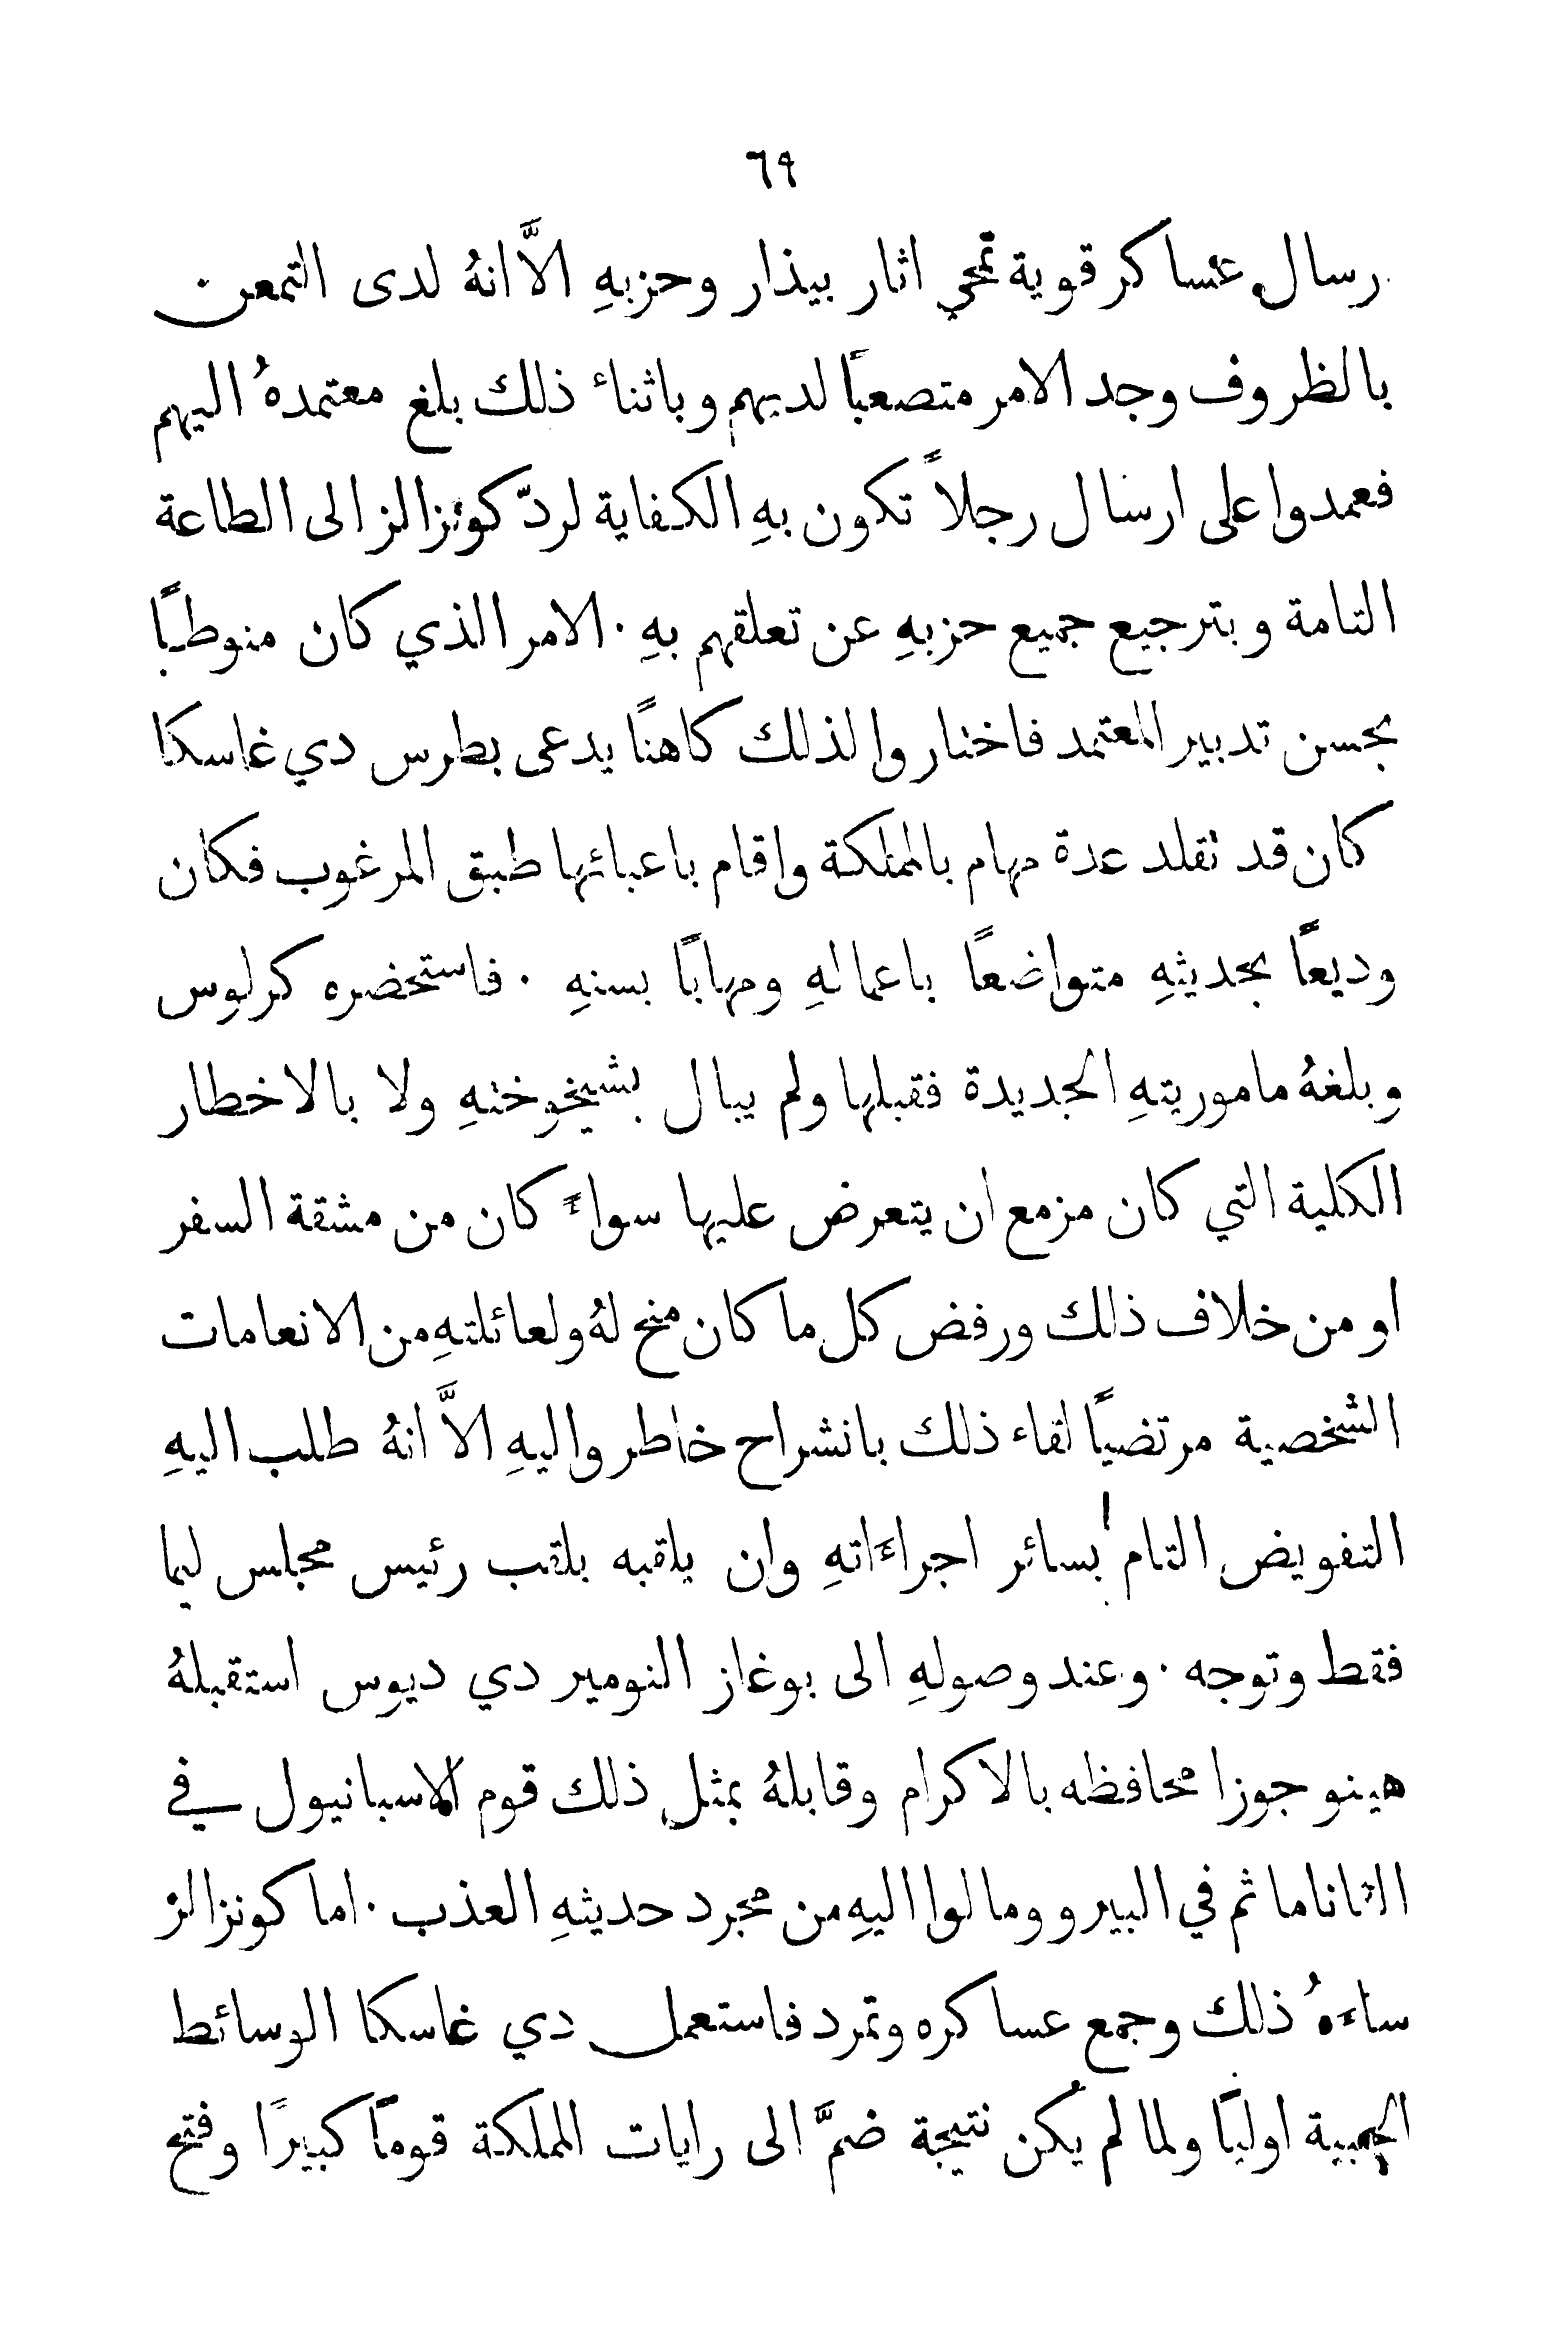 ٦٩
رسال عساكر قوية تمحي اثار بيذار وحزبهِ الاَّ انهُ لدى التمعن
بالظروف وجد الامر متصعبًا لديهم وباثناء ذلك بلغ معتمدهُ اليهم
فعمدوا على ارسال رجلاً تكون بهِ الكفاية لردّ كونزالز الى الطاعة
التامة وبترجيع جميع حزبهِ عن تعلقهم بهِ ٠ الامر الذي كان منوطبًا
بحسن تدبير المعتمد فاختاروا لذلك كاهنًا يدعى بطرس دي غاسكا
كان قد نقلد عدة مهام بالمملكة واقام باعبائها طبق المرغوب فكان
وديعًا بحديثهِ متواضعًا باعمالهِ ومهابًا بسنهِ ٠ فاستحضره كرلوس
وبلغهُ ماموريتهِ الجديدة فقبلها ولم يبال بشيخوختهِ ولا بالاخطار
الكلية التي كان مزمع ان يتعرض عليها سواءً كان من مشقة السفر
او من خلاف ذلك ورفض كل ما كان منح لهُ ولعائلتهِ من الانعامات
الشخصية مرتضيًا لقاء ذلك بانشراح خاطر واليهِ الاَّ انهُ طلب اليهِ
التفويض التام بسائر اجراءَاتهِ وان يلقبه بلقب رئيس مجلس ليما
فقط وتوجه ٠ وعند وصولهِ الى بوغاز النومير دي ديوس استقبلهُ
هينو جوزا محافظه بالاكرام وقابلهُ بمثل ذلك قوم الاسبانيول في
الثاناما ثم في البيرو ومالوا اليهِ من مجرد حديثهِ العذب ٠ اما كونزالز
ساءَهُ ذلك وجمع عساكره وتمرد فاستعمل دي غاسكا الوسائط
الحبية اوليًا ولما لم يكن نتيجة ضمَّ الى رايات المملكة قومًا كبيرًا وفتح